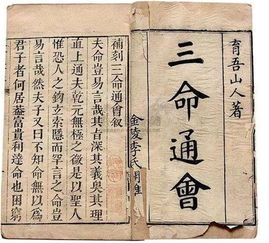 育吾山人著
三命通會
金陵李氏
補刻三命通會叙
夫命豈易言哉其旨深其義奧其理
直上通夫乾元無極之微是以聖人
惟恐人之鉤玄索隱而罕言之命豈
易言哉然夫子又曰不知命無以爲
君子者何居葢富貴利達命也困窮